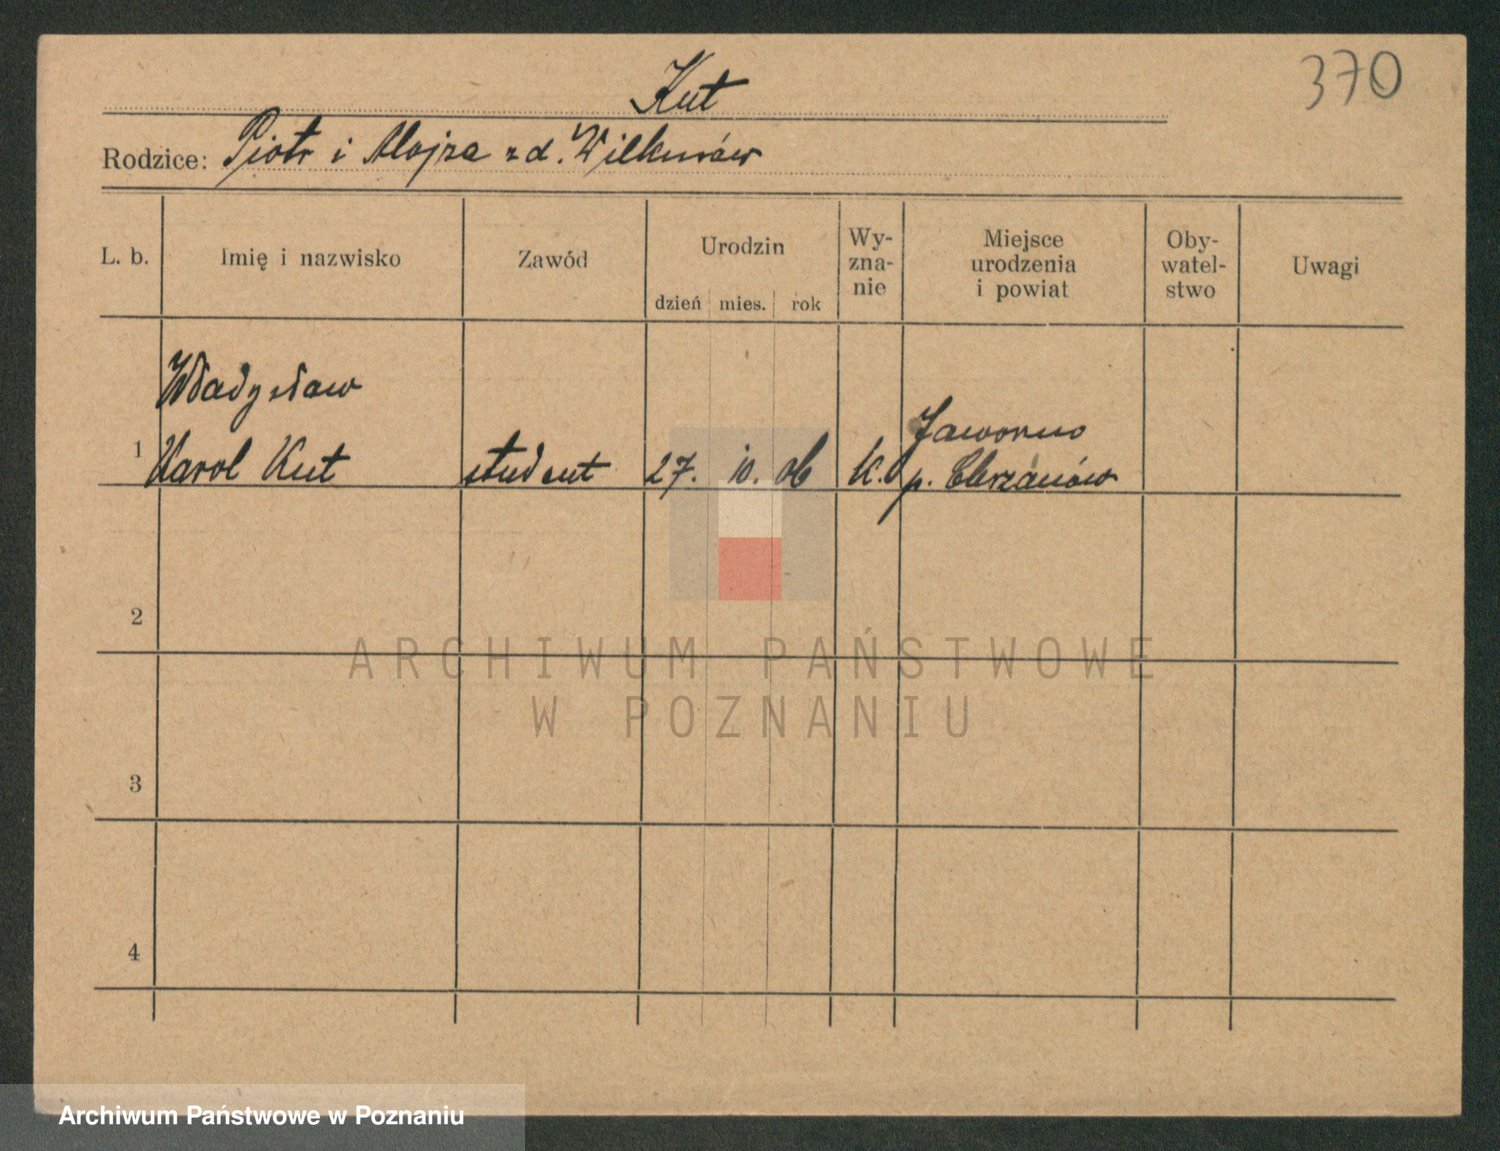 370
Kut
Rodzice: Piotr i Alojza z d. Wilkuszów
L. b.
Imię i nazwisko
Zawód
Urodzin
dzień mies. rok
Wy-
zna-
nie
Miejsce
urodzenia
i powiat
Oby-
watel-
stwo
Uwagi
Władysław
1 Karol Kut student 27. 10. 06 k. Jaworzno
p. Chrzanów
2
3
4
ARCHIWUM PAŃSTWOWE
W POZNANIU
Archiwum Państwowe w Poznaniu